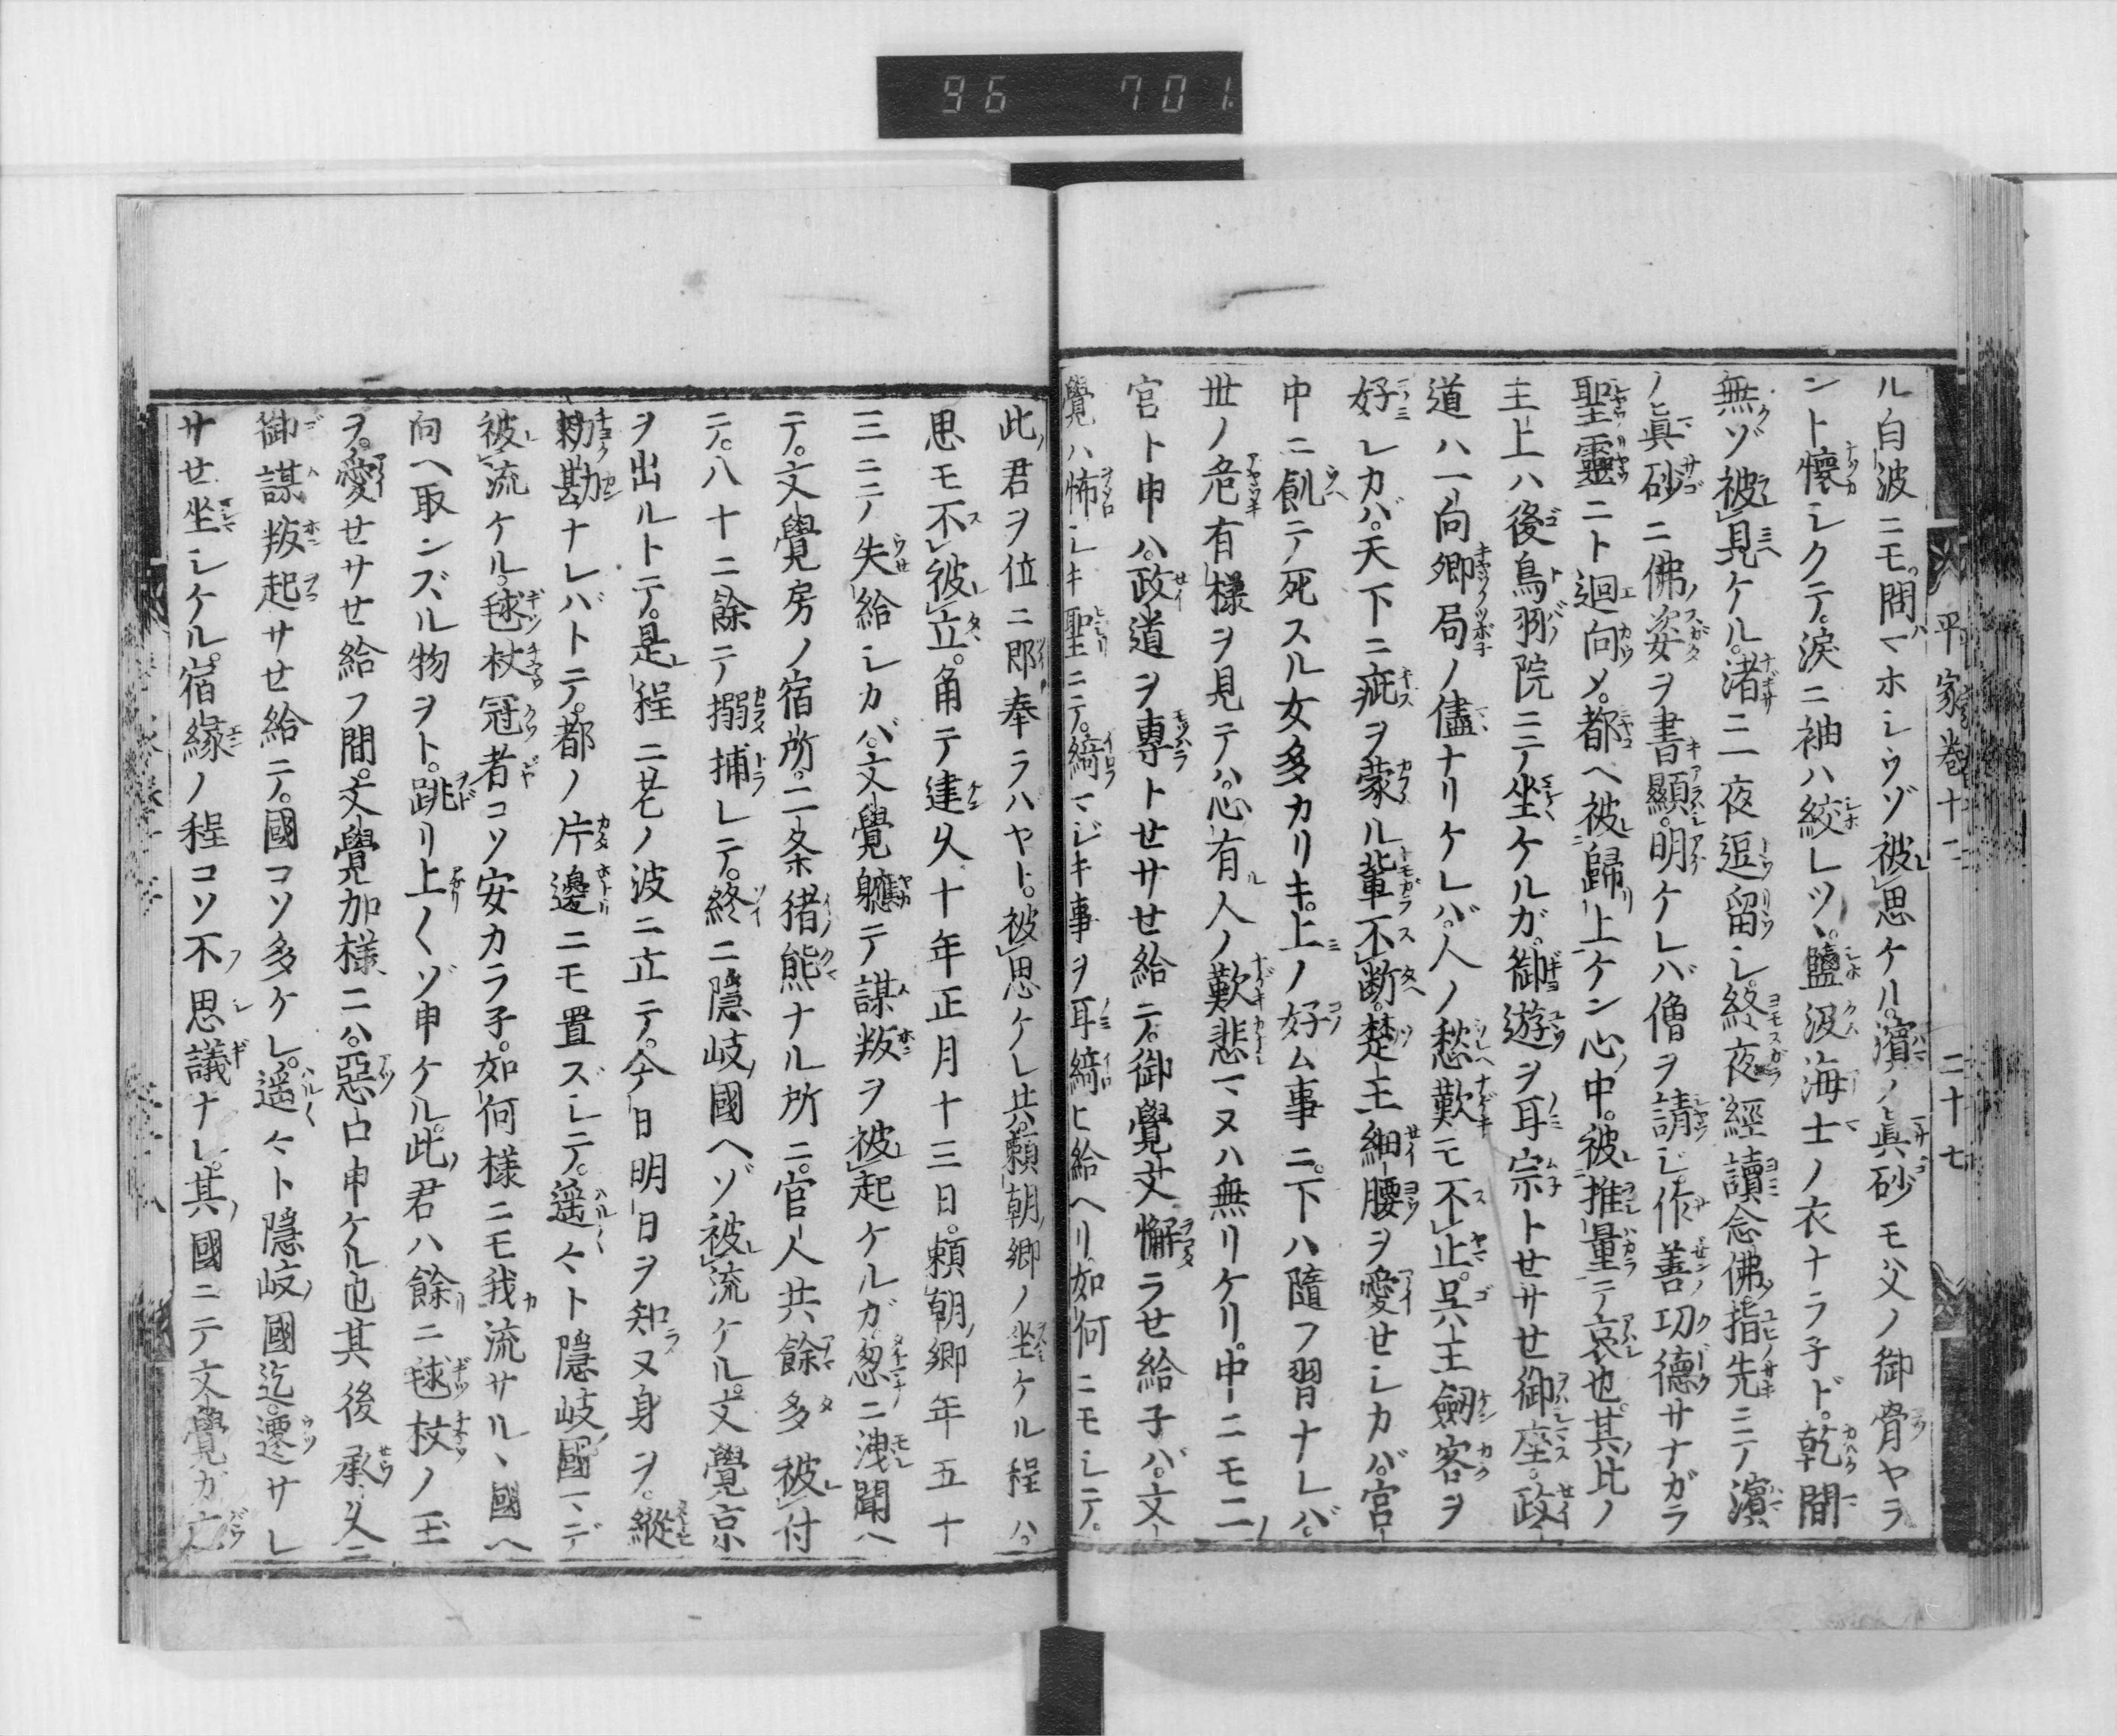 96 701
平家巻十二 二十七
ル白波ニモ。問マホシウゾ被思ケル。濱ノ眞砂モ父ノ御骨ヤラ
ント懷シクテ。涙ニ袖ハ絞レツヽ。鹽汲海士ノ衣ナラ子ド。乾間
無ゾ被見ケル。渚ニ一夜逗留シ。終夜經讀念佛。指先ニテ濱
ノ眞砂ニ佛姿ヲ書顯。明ケレバ僧ヲ請ジ。作善功德サナガラ
聖靈ニト廻向メ。都ヘ被歸上ケン心ノ中。被推量テ哀也。其比ノ
主上ハ後鳥羽院ニテ坐ケルガ。御遊ヲ耳宗トせサせ御座。政
道ハ一向卿局ノ儘ナリケレバ。人ノ愁歎モ不止。呉王劔客ヲ
好シカバ。天下ニ疵ヲ蒙ル輩不断。楚王細腰ヲ愛せシカバ。宮
中ニ飢テ死スル女多カリキ。上ノ好ム事ニ。下ハ隨フ習ナレバ。
世ノ危有樣ヲ見テハ。心有人ノ歎悲マヌハ無リケリ。中ニモ二ノ
宮ト申ハ。政道ヲ專トせサせ給テ。御學文懈ラせ給子バ。文
覺ハ怖シキ聖ニテ。綺マジキ事ヲ耳綺ヒ給ヘリ。如何ニモシテ。
此君ヲ位ニ即奉ラハヤト。被思ケレ共。頼朝ノ卿ノ坐ケル程ハ。
思モ不被立。角テ建久十年正月十三日。頼朝ノ卿年五十
三ニテ失給シカバ。文覺軈テ謀叛ヲ被起ケルガ。忽ニ洩聞ヘ
テ。文覺房ノ宿所。二条猪熊ナル所ニ。官人共餘多被付
テ。八十ニ餘テ搦捕レテ。終ニ隠岐國ヘゾ被流ケル。文覺京
ヲ出ルトテ。是程ニ老ノ波ニ立テ。今日明日ヲ知ヌ身ヲ。縱
勅勘ナレバトテ。都ノ片邊ニモ置ズシテ。遥々ト隠岐國マデ
被流ケル。毬杖冠者コソ安カラ子。如何樣ニモ我流サルヽ國ヘ
向ヘ取ンズル物ヲト。跳リ上〱ゾ申ケル。此君ハ餘ニ毬杖ノ玉
ヲ。愛せサせ給フ間。文覺加樣ニハ。惡口申ケル也。其後承久ニ
御謀叛起サせ給テ。國コソ多ケレ。遥々ト隠岐國迄。遷サレ
サせ坐シケル。宿縁ノ程コソ不思議ナレ。其國ニテ文覺ガ亡